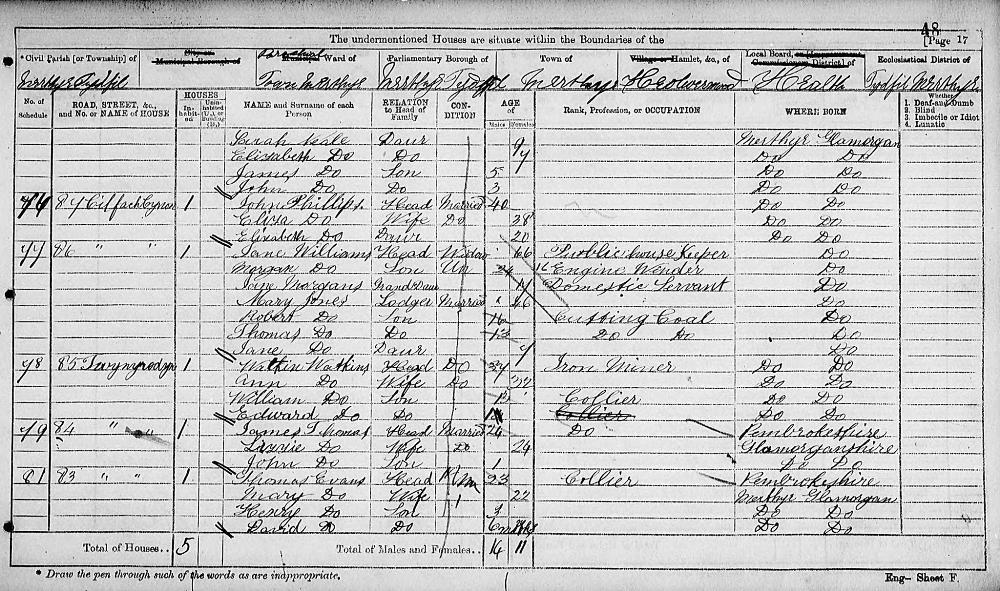 48
The undermentioned Houses are situate within the Boundaries of the [Page 17
*Civil Parish [or Township] of City or Municipal Borough of Municipal Ward of Parliamentary Borough of Town of Village or Hamlet, &c., of Local Board, or [Improvement Commissioners District] of Ecclesiastical District of
Merthyr Tydfil Town Merthyr Merthyr Tydfil Merthyr Heolwermood Health Tydfil Merthyr
No. of Schedule ROAD, STREET, &c., and No. or NAME of HOUSE HOUSES Inhabited Uninhabited (U.), or Building (B.) NAME and Surname of each Person RELATION to Head of Family CONDITION AGE of Males Females Rank, Profession, or OCCUPATION WHERE BORN Whether 1. Deaf-and-Dumb 2. Blind 3. Imbecile or Idiot 4. Lunatic
Sarah Neale Daur 9 Merthyr Glamorgan
Elizabeth Do Do 7 Do Do
James Do Son 5 Do Do
John Do Do 3 Do Do
76 87 Cilfach Cynon 1 John Phillips Head Married 40 Do Do
Eliza Do Wife Do 38 Do Do
Elizabeth Do Daur 20 Do Do
77 86 " " 1 Jane Williams Head Widow 66 Publichouse Keeper Do
Morgan Do Son Un 24 Engine Wender Do
Jane Morgans Grand Daur 14 Domestic Servant Do
Mary Jones Lodger Married 46 Do
Robert Do Son 16 Cutting Coal Do
Thomas Do Do 13 Do Do Do
Jane Do Daur 7 Do
78 85 Twynyrodyn 1 Watkin Watkins Head Do 34 Iron Miner Do Do
Ann Do Wife Do 32 Do Do
William Do Son 13 Collier Do Do
Edward Do Do Collier Do Do
79 84 " " 1 James Thomas Head Married 26 Do Pembrokeshire
Lizzie Do Wife Do 24 Glamorganshire
John Do Son 1 Do Do
81 83 " " 1 Thomas Evans Head 23 Collier Pembrokeshire
Mary Do Wife 22 Merthyr Glamorgan
Henry Do Son 3 Do Do
David Do Do 6 mths Do Do
Total of Houses.. 5 Total of Males and Females.. 14 11
* Draw the pen through such of the words as are inappropriate. Eng- Sheet F.